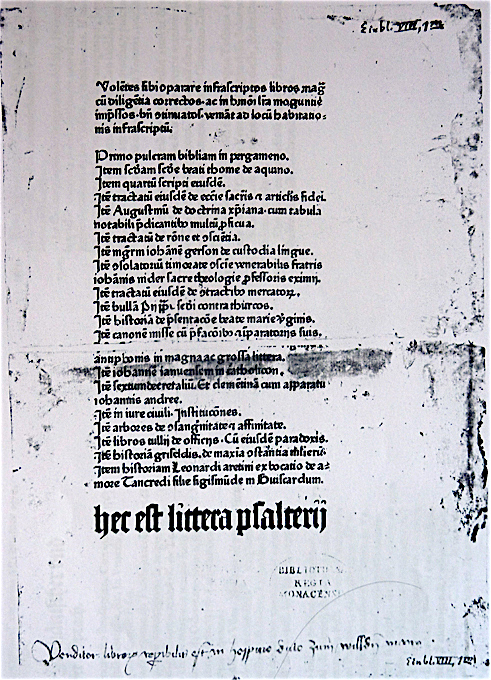 Einbl. VIII, 1 m
Volētes sibi cōparare infrascriptos libros mag̃
cū diligētia correctos. ac in hmōi lr̄a moguntie
imp̄ssos. bn̄ cōtinuatos. veniāt ad locū habitatio-
nis infrascriptū.
Primo pulcram bibliam in pergameno.
Item scd̄am scd̄e beati thome de aquino.
Item quartū scripti eiusdē.
Itē tractatū eiusdē de eccīe sacr̄is ⁊ articl̄is fidei.
Itē Augustinū de doctrina xp̄iana. cum tabula
notabili p̄dicantibꝰ multū ꝓficua.
Itē tractatū de rōne et ↄsciētia.
Itē mgr̄m iohānē gerson de custodia lingue.
Itē ↄsolatoriū timorate ↄscīe venerabilis fratris
iohānis nider sacre theologie ꝓfessoris eximij.
Itē tractatū eiusdē de ↄtractibꝰ mercatoꝝ.
Itē bullā pij pp̄ scd̄i contra thurcos.
Itē historiā de p̄sentacōe beate marie v̓ginis.
Itē canonē misse cū p̄facōibꝰ ⁊ īparatorijs suis.
antiphonis in magna ac grossa littera.
Itē iohannē ianuensem in catholicon.
Itē sextumdecretaliū. Et clemētinā cum apparatu
iohannis andree.
Itē in iure ciuili. Institucōnes.
Itē arbores de ↄsanguītate ⁊ affinitate.
Itē libros tullij de officijs. Cū eiusdē paradoxis.
Itē historiā griseldis. de maxīa ↄstantia mulierū.
Item historiam Leonardi aretini ex bocatio de a-
more Tancredi filie sigismūde in Guiscardum.
hec est littera psalterij
BIBLIOTHECA
REGIA
MONACENSIS
Venditor libroꝝ repibilis est in hospicio dicto zum willden mann
Einbl. VIII, 1 m